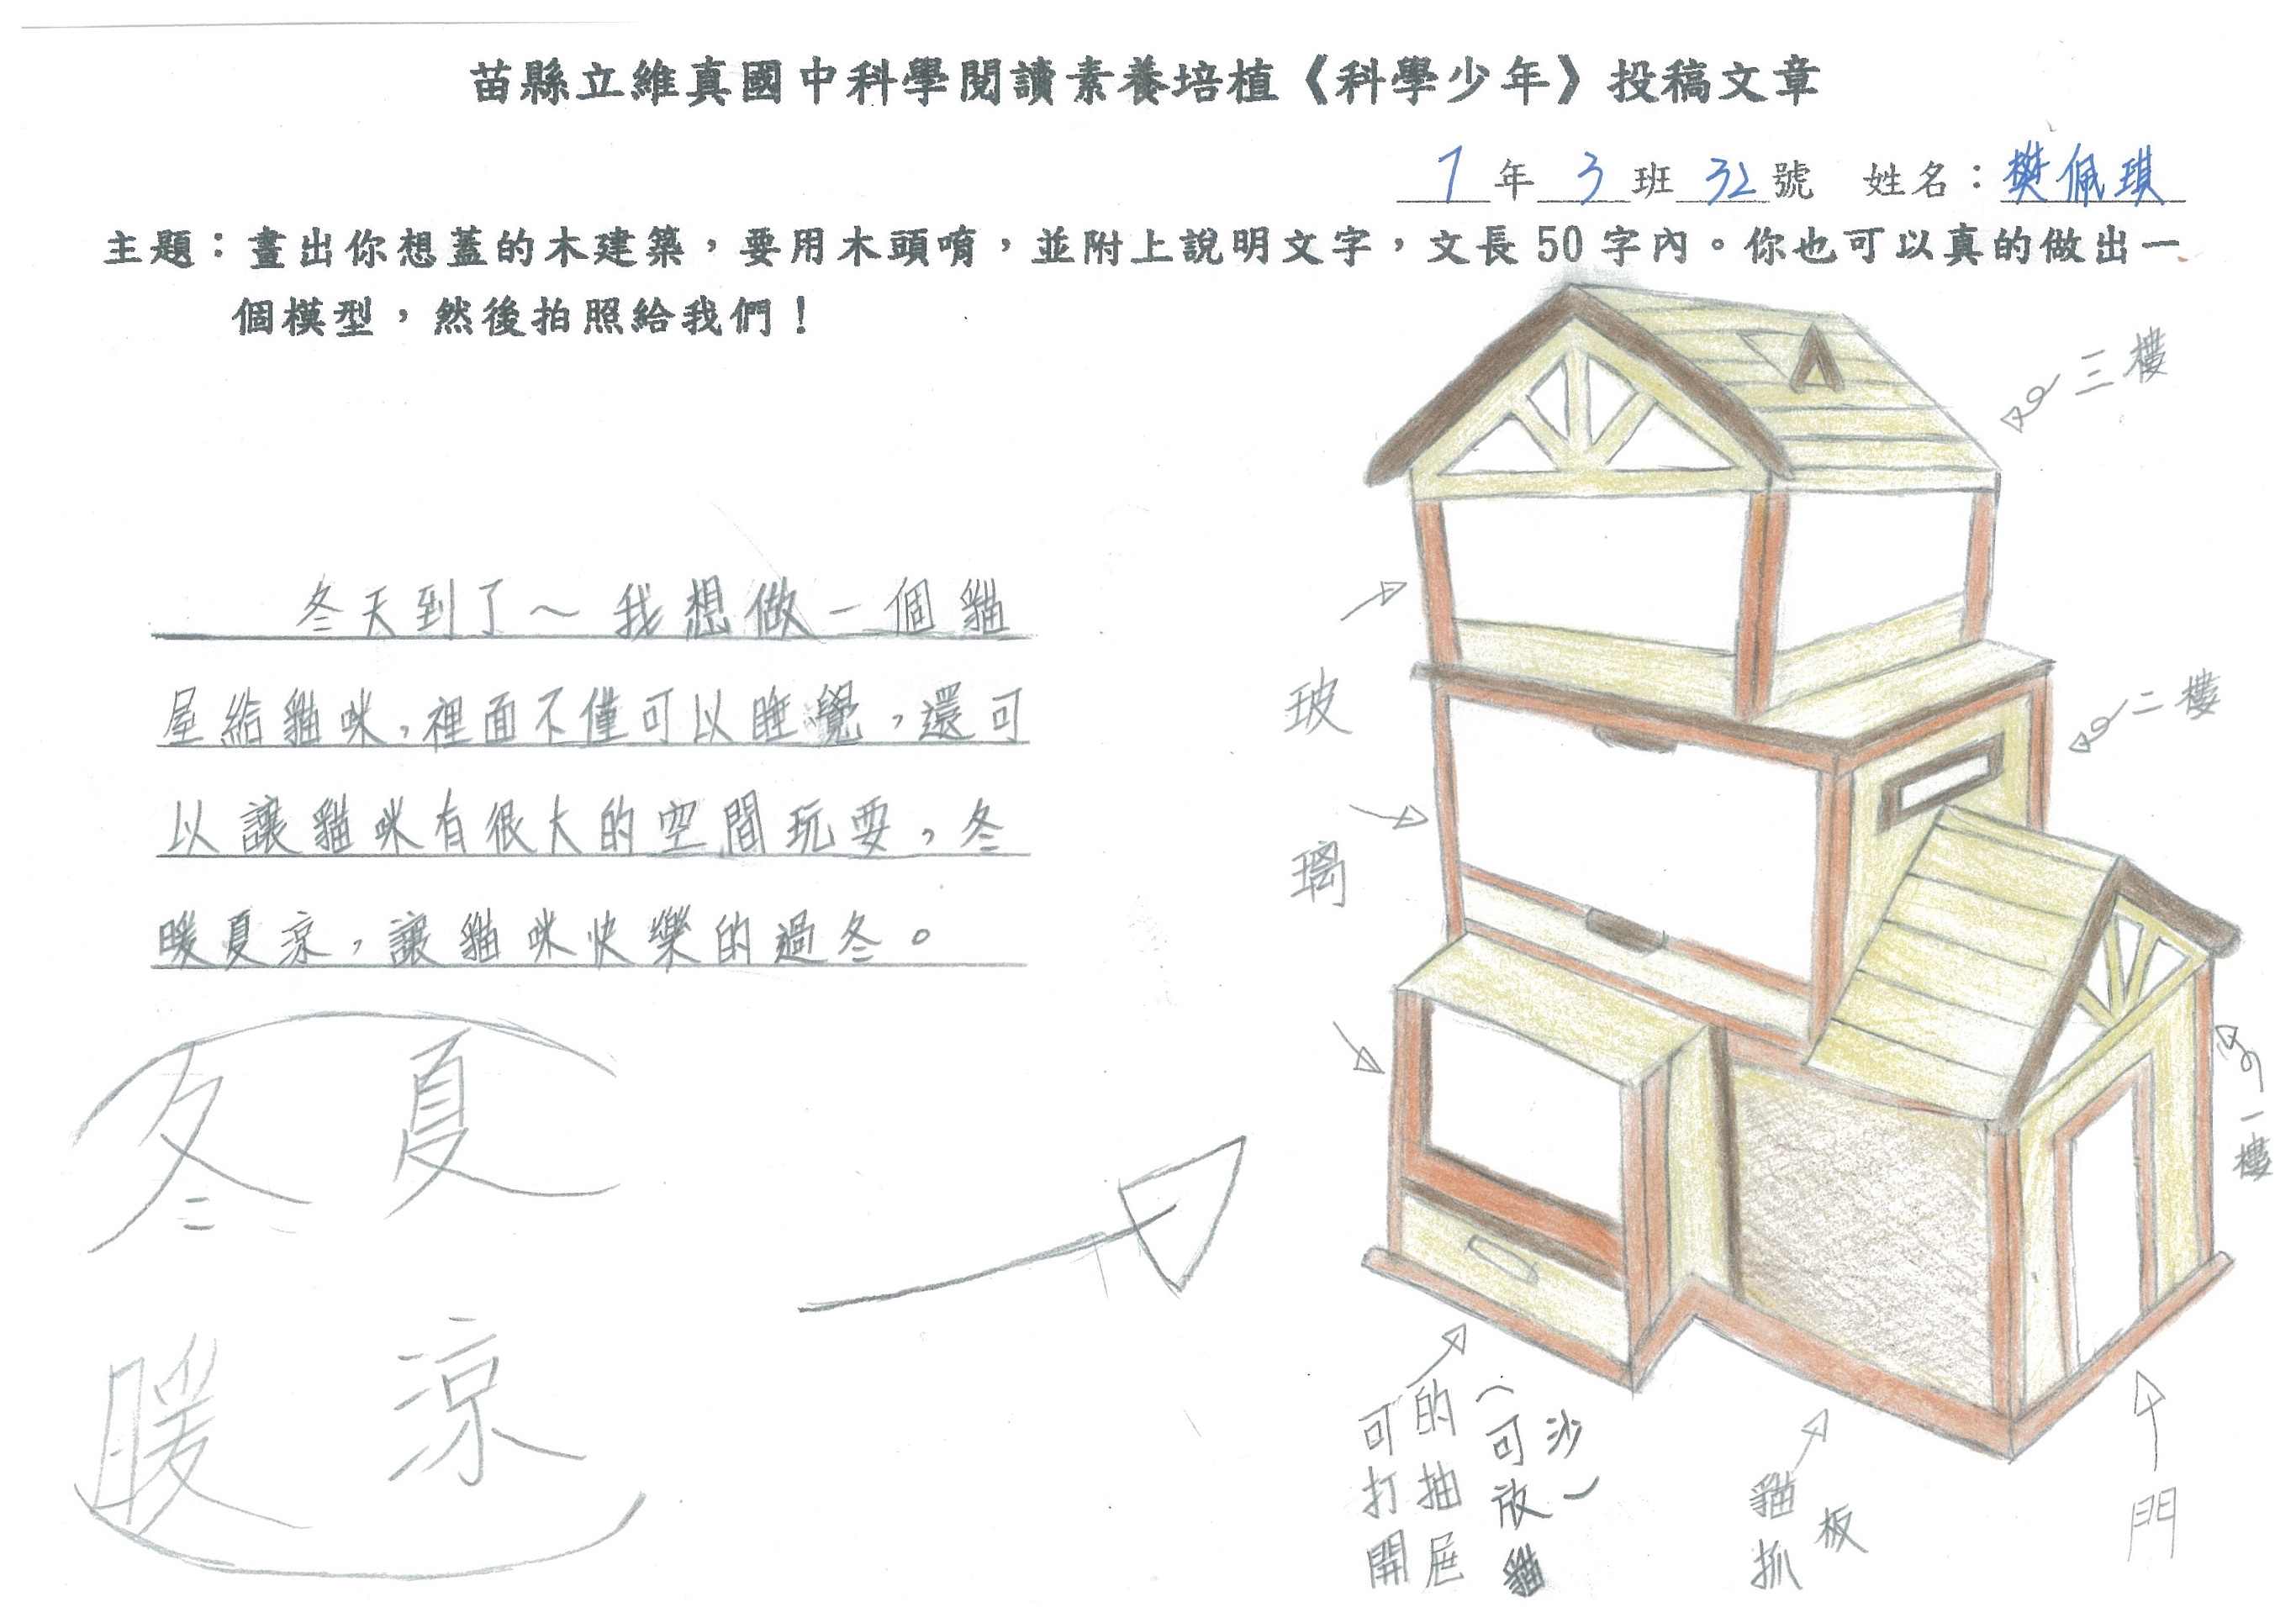 苗縣立維真國中科學閱讀素養培植《科學少年》投稿文章
7 年 3 班 32 號 姓名：樊佩琪
主題：畫出你想蓋的木建築，要用木頭唷，並附上說明文字，文長50字內。你也可以真的做出一
個模型，然後拍照給我們！
冬天到了～我想做一個貓
屋給貓咪，裡面不僅可以睡覺，還可
以讓貓咪有很大的空間玩耍，冬
暖夏涼，讓貓咪快樂的過冬。
冬夏
暖涼
三樓
二樓
一樓
玻璃
可打開
的抽屜
（可放貓
沙）
貓抓
板
門